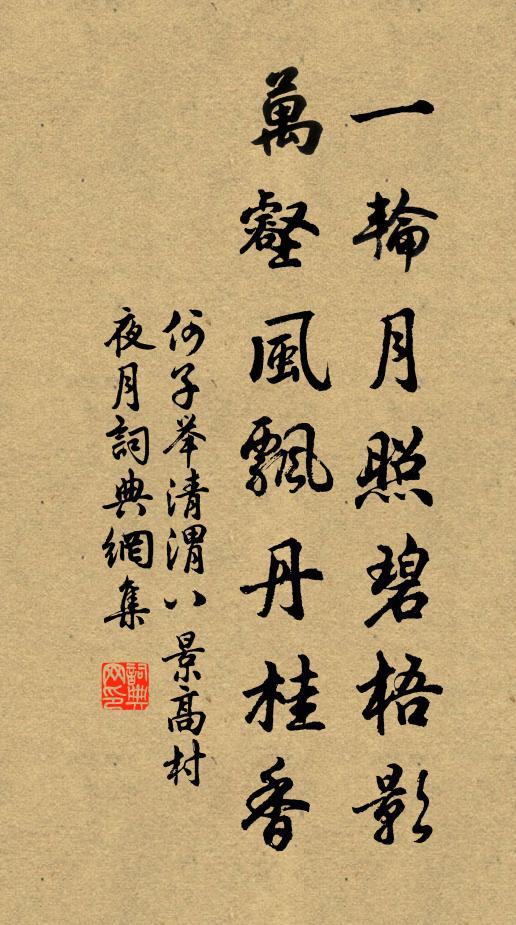 一輪月照碧梧影
萬壑風飄丹桂香
何子举清渭八景高村
夜月詞典網集
詞典
网印